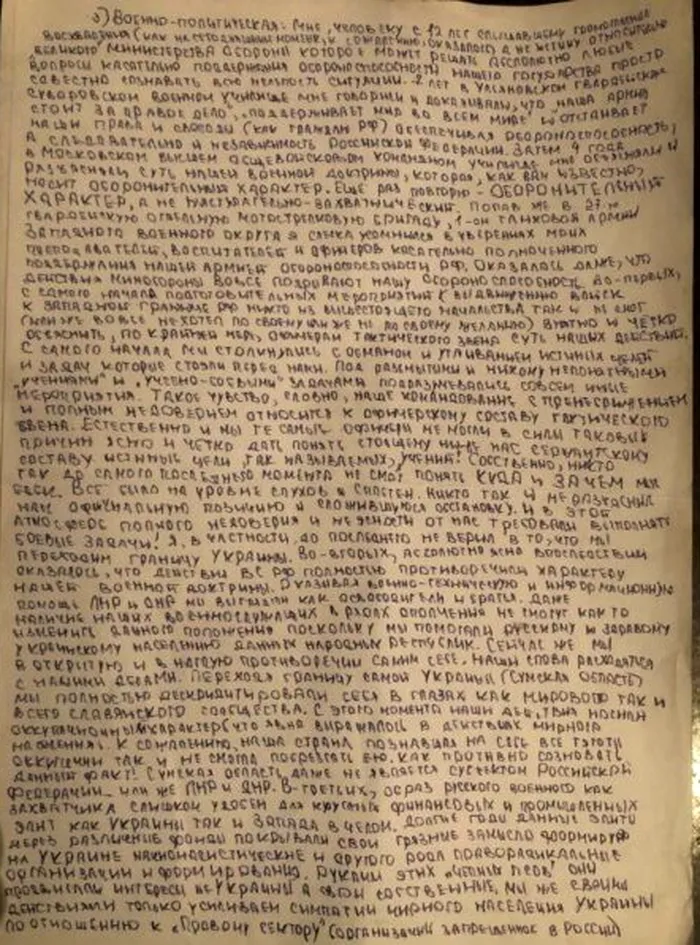 3) ВОЕННО-ПОЛИТИЧЕСКАЯ: МНЕ, ЧЕЛОВЕКУ С 12 ЛЕТ СЛЫШАВШЕМУ ГРОМОГЛАСНЫЕ
ВОСХВАЛЕНИЯ (КАК НА СЕГОДНЯШНИЙ МОМЕНТ, К СОЖАЛЕНИЮ, ОКАЗАЛОСЬ) А НЕ ИСТИНУ ОТНОСИТЕЛЬНО
"ВЕЛИКОГО" МИНИСТЕРСТВА ОБОРОНЫ КОТОРОЕ МОЖЕТ РЕШАТЬ АБСОЛЮТНО ЛЮБЫЕ
ВОПРОСЫ КАСАТЕЛЬНО ПОДДЕРЖАНИЯ ОБОРОНОСПОСОБНОСТИ НАШЕГО ГОСУДАРСТВА ПРОСТО
СОВЕСТНО СОЗНАВАТЬ ВСЮ НЕЛЕПОСТЬ СИТУАЦИИ. 7 ЛЕТ В УЛЬЯНОВСКОМ ГВАРДЕЙСКОМ
СУВОРОВСКОМ ВОЕННОМ УЧИЛИЩЕ МНЕ ГОВОРИЛИ И ДОКАЗЫВАЛИ, ЧТО "НАША АРМИЯ
СТОИТ ЗА ПРАВОЕ ДЕЛО", "ПОДДЕРЖИВАЕТ МИР ВО ВСЕМ МИРЕ" И "ОТСТАИВАЕТ
НАШИ ПРАВА И СВОБОДЫ (КАК ГРАЖДАН РФ) ОБЕСПЕЧИВАЯ ОБОРОНОСПОСОБНОСТЬ,
А СЛЕДОВАТЕЛЬНО И НЕЗАВИСИМОСТЬ РОССИЙСКОЙ ФЕДЕРАЦИИ. ЗАТЕМ 4 ГОДА
В МОСКОВСКОМ ВЫСШЕМ ОБЩЕВОЙСКОВОМ КОМАНДНОМ УЧИЛИЩЕ МНЕ ОБЪЯСНЯЛИ И
РАЗЪЯСНЯЛИ СУТЬ НАШЕЙ ВОЕННОЙ ДОКТРИНЫ, КОТОРАЯ, КАК ВАМ ИЗВЕСТНО,
НОСИТ ОБОРОНИТЕЛЬНЫЙ ХАРАКТЕР. ЕЩЕ РАЗ ПОВТОРЮ - ОБОРОНИТЕЛЬНЫЙ
ХАРАКТЕР, А НЕ НАСТУПАТЕЛЬНО-ЗАХВАТНИЧЕСКИЙ. ПОПАВ ЖЕ В 27-Ю
ГВАРДЕЙСКУЮ ОТДЕЛЬНУЮ МОТОСТРЕЛКОВУЮ БРИГАДУ, 1-ОЙ ТАНКОВОЙ АРМИИ
ЗАПАДНОГО ВОЕННОГО ОКРУГА Я СЛЕГКА УСОМНИЛСЯ В УВЕРЕНИЯХ МОИХ
ПРЕПОДАВАТЕЛЕЙ, ВОСПИТАТЕЛЕЙ И ОФИЦЕРОВ КАСАТЕЛЬНО ПОЛНОЦЕННОГО
ПОДДЕРЖАНИЯ НАШЕЙ АРМИЕЙ ОБОРОНОСПОСОБНОСТИ РФ. ОКАЗАЛОСЬ ДАЖЕ, ЧТО
ДЕЙСТВИЯ МИНОБОРОНЫ ВОВСЕ ПОДРЫВАЮТ НАШУ ОБОРОНОСПОСОБНОСТЬ. ВО-ПЕРВЫХ,
С САМОГО НАЧАЛА ПОДГОТОВИТЕЛЬНЫХ МЕРОПРИЯТИЙ К ВЫДВИЖЕНИЮ ВОЙСК
К ЗАПАДНОЙ ГРАНИЦЕ РФ НИКТО ИЗ ВЫШЕСТОЯЩЕГО НАЧАЛЬСТВА ТАК И НЕ СМОГ
(ИЛИ ЖЕ ВОВСЕ НЕ ХОТЕЛ ПО СВОЕМУ ИЛИ ЖЕ НЕ ПО СВОЕМУ ЖЕЛАНИЮ) ВНЯТНО И ЧЕТКО
ОБЪЯСНИТЬ, ПО КРАЙНЕЙ МЕРЕ, ОФИЦЕРАМ ТАКТИЧЕСКОГО ЗВЕНА СУТЬ НАШИХ ДЕЙСТВИЙ.
С САМОГО НАЧАЛА МЫ СТОЛКНУЛИСЬ С ОБМАНОМ И УТАИВАНИЕМ ИСТИННЫХ ЦЕЛЕЙ
И ЗАДАЧ КОТОРЫЕ СТОЯЛИ ПЕРЕД НАМИ. ПОД РАЗМЫТЫМИ И НИКОМУ НЕПОНЯТНЫМИ
"УЧЕНИЯМИ" И "УЧЕБНО-БОЕВЫМИ" ЗАДАЧАМИ ПОДРАЗУМЕВАЛИСЬ СОВСЕМ ИНЫЕ
МЕРОПРИЯТИЯ. ТАКОЕ ЧУВСТВО, СЛОВНО, НАШЕ КОМАНДОВАНИЕ С ПРЕНЕБРЕЖЕНИЕМ
И ПОЛНЫМ НЕДОВЕРИЕМ ОТНОСИТСЯ К ОФИЦЕРСКОМУ СОСТАВУ ТАКТИЧЕСКОГО
ЗВЕНА. ЕСТЕСТВЕННО И МЫ ТЕ САМЫЕ ОФИЦЕРЫ НЕ МОГЛИ В СИЛУ ТАКОВЫХ
ПРИЧИН ЯСНО И ЧЕТКО ДАТЬ ПОНЯТЬ СТОЯЩЕМУ НИЖЕ НАС СЕРЖАНТСКОМУ
СОСТАВУ ИСТИННЫЕ ЦЕЛИ ТАК НАЗЫВАЕМЫХ "УЧЕНИЙ". СОБСТВЕННО, НИКТО
ТАК ДО САМОГО ПОСЛЕДНЕГО МОМЕНТА НЕ СМОГ ПОНЯТЬ КУДА И ЗАЧЕМ МЫ
ЕДЕМ. ВСЕ БЫЛО НА УРОВНЕ СЛУХОВ И СПЛЕТЕН. НИКТО ТАК И НЕ РАЗЪЯСНИЛ
НАМ ОФИЦИАЛЬНУЮ ПОЗИЦИЮ И СЛОЖИВШУЮСЯ ОБСТАНОВКУ. И В ЭТОЙ
АТМОСФЕРЕ ПОЛНОГО НЕДОВЕРИЯ И НЕЯСНОСТИ ОТ НАС ТРЕБОВАЛИ ВЫПОЛНЯТЬ
БОЕВЫЕ ЗАДАЧИ! Я, В ЧАСТНОСТИ, ДО ПОСЛЕДНЕГО НЕ ВЕРИЛ В ТО, ЧТО МЫ
ПЕРЕХОДИМ ГРАНИЦУ УКРАИНЫ. ВО-ВТОРЫХ, АБСОЛЮТНО ЯСНО ВПОСЛЕДСТВИИ
ОКАЗАЛОСЬ, ЧТО ДЕЙСТВИЯ ВС РФ ПОЛНОСТЬЮ ПРОТИВОРЕЧИЛИ ХАРАКТЕРУ
НАШЕЙ ВОЕННОЙ ДОКТРИНЫ. ОКАЗЫВАЯ ВОЕННО-ТЕХНИЧЕСКУЮ И ИНФОРМАЦИОННУЮ
ПОМОЩЬ ЛНР И ДНР МЫ ВЫГЛЯДЕЛИ КАК ОСВОБОДИТЕЛИ И БРАТЬЯ. ДАЖЕ
НАЛИЧИЕ НАШИХ ВОЕННОСЛУЖАЩИХ В РЯДАХ ОПОЛЧЕНИЯ НЕ СМОГУТ КАК ТО
ИЗМЕНИТЬ ДАННОГО ПОЛОЖЕНИЯ ПОСКОЛЬКУ МЫ ПОМОГАЛИ РУССКОМУ И ЗДРАВОМУ
УКРАИНСКОМУ НАСЕЛЕНИЮ ДАННЫХ НАРОДНЫХ РЕСПУБЛИК. СЕЙЧАС ЖЕ МЫ
В ОТКРЫТУЮ И В НАГЛУЮ ПРОТИВОРЕЧИМ САМИМ СЕБЕ. НАШИ СЛОВА РАСХОДЯТСЯ
С НАШИМИ ДЕЛАМИ. ПЕРЕХОДЯ ГРАНИЦУ САМОЙ УКРАИНЫ (СУМСКАЯ ОБЛАСТЬ)
МЫ ПОЛНОСТЬЮ ДИСКРИДИТИРОВАЛИ СЕБЯ В ГЛАЗАХ КАК МИРОВОГО ТАК И
ВСЕГО СЛАВЯНСКОГО СООБЩЕСТВА. С ЭТОГО МОМЕНТА НАШИ ДЕЙСТВИЯ НОСИЛИ
ОККУПАЦИОННЫЙ ХАРАКТЕР (ЧТО ЯВНО ВЫРАЖАЛОСЬ В ДЕЙСТВИЯХ МИРНОГО
НАСЕЛЕНИЯ). К СОЖАЛЕНИЮ, НАША СТРАНА ПОЗНАВШАЯ НА СЕБЕ ВСЕ ТЯГОТЫ
ОККУПАЦИИ ТАК И НЕ СМОГЛА ПОБРЕЗГАТЬ ЕЮ. КАК ПРОТИВНО СОЗНОВАТЬ
ДАННЫЙ ФАКТ! СУМСКАЯ ОБЛАСТЬ ДАЖЕ НЕ ЯВЛЯЕТСЯ СУБЪЕКТОМ РОССИЙСКОЙ
ФЕДЕРАЦИИ ИЛИ ЖЕ ЛНР И ДНР. В-ТРЕТЬИХ, ОБРАЗ РУССКОГО ВОЕННОГО КАК
ЗАХВАТЧИКА СЛИШКОМ УДОБЕН ДЛЯ КРУПНЫХ ФИНАНСОВЫХ И ПРОМЫШЛЕННЫХ
ЭЛИТ КАК УКРАИНЫ ТАК И ЗАПАДА В ЦЕЛОМ. ДОЛГИЕ ГОДЫ ДАННЫЕ ЭЛИТЫ
ЧЕРЕЗ РАЗЛИЧНЫЕ ФОНДЫ ПОКРЫВАЛИ СВОИ ГРЯЗНЫЕ ЗАМЫСЛЫ ФОРМИРУЯ
НА УКРАИНЕ НАЦИОНАЛИСТИЧЕСКИЕ И ДРУГОГО РОДА ПРАВОРАДИКАЛЬНЫЕ
ОРГАНИЗАЦИИ И ФОРМИРОВАНИЯ. РУКАМИ ЭТИХ "ЦЕПНЫХ ПСОВ" ОНИ
ПРОДВИГАЛИ ИНТЕРЕСЫ НЕ УКРАИНЫ А СВОИ СОБСТВЕННЫЕ, МЫ ЖЕ СВОИМИ
ДЕЙСТВИЯМИ ТОЛЬКО УСИЛИВАЕМ СИМПАТИИ МИРНОГО НАСЕЛЕНИЯ УКРАИНЫ
ПО ОТНОШЕНИЮ К "ПРАВОМУ СЕКТОРУ" (ОРГАНИЗАЦИЙ ЗАПРЕЩЕННОЕ В РОССИИ)